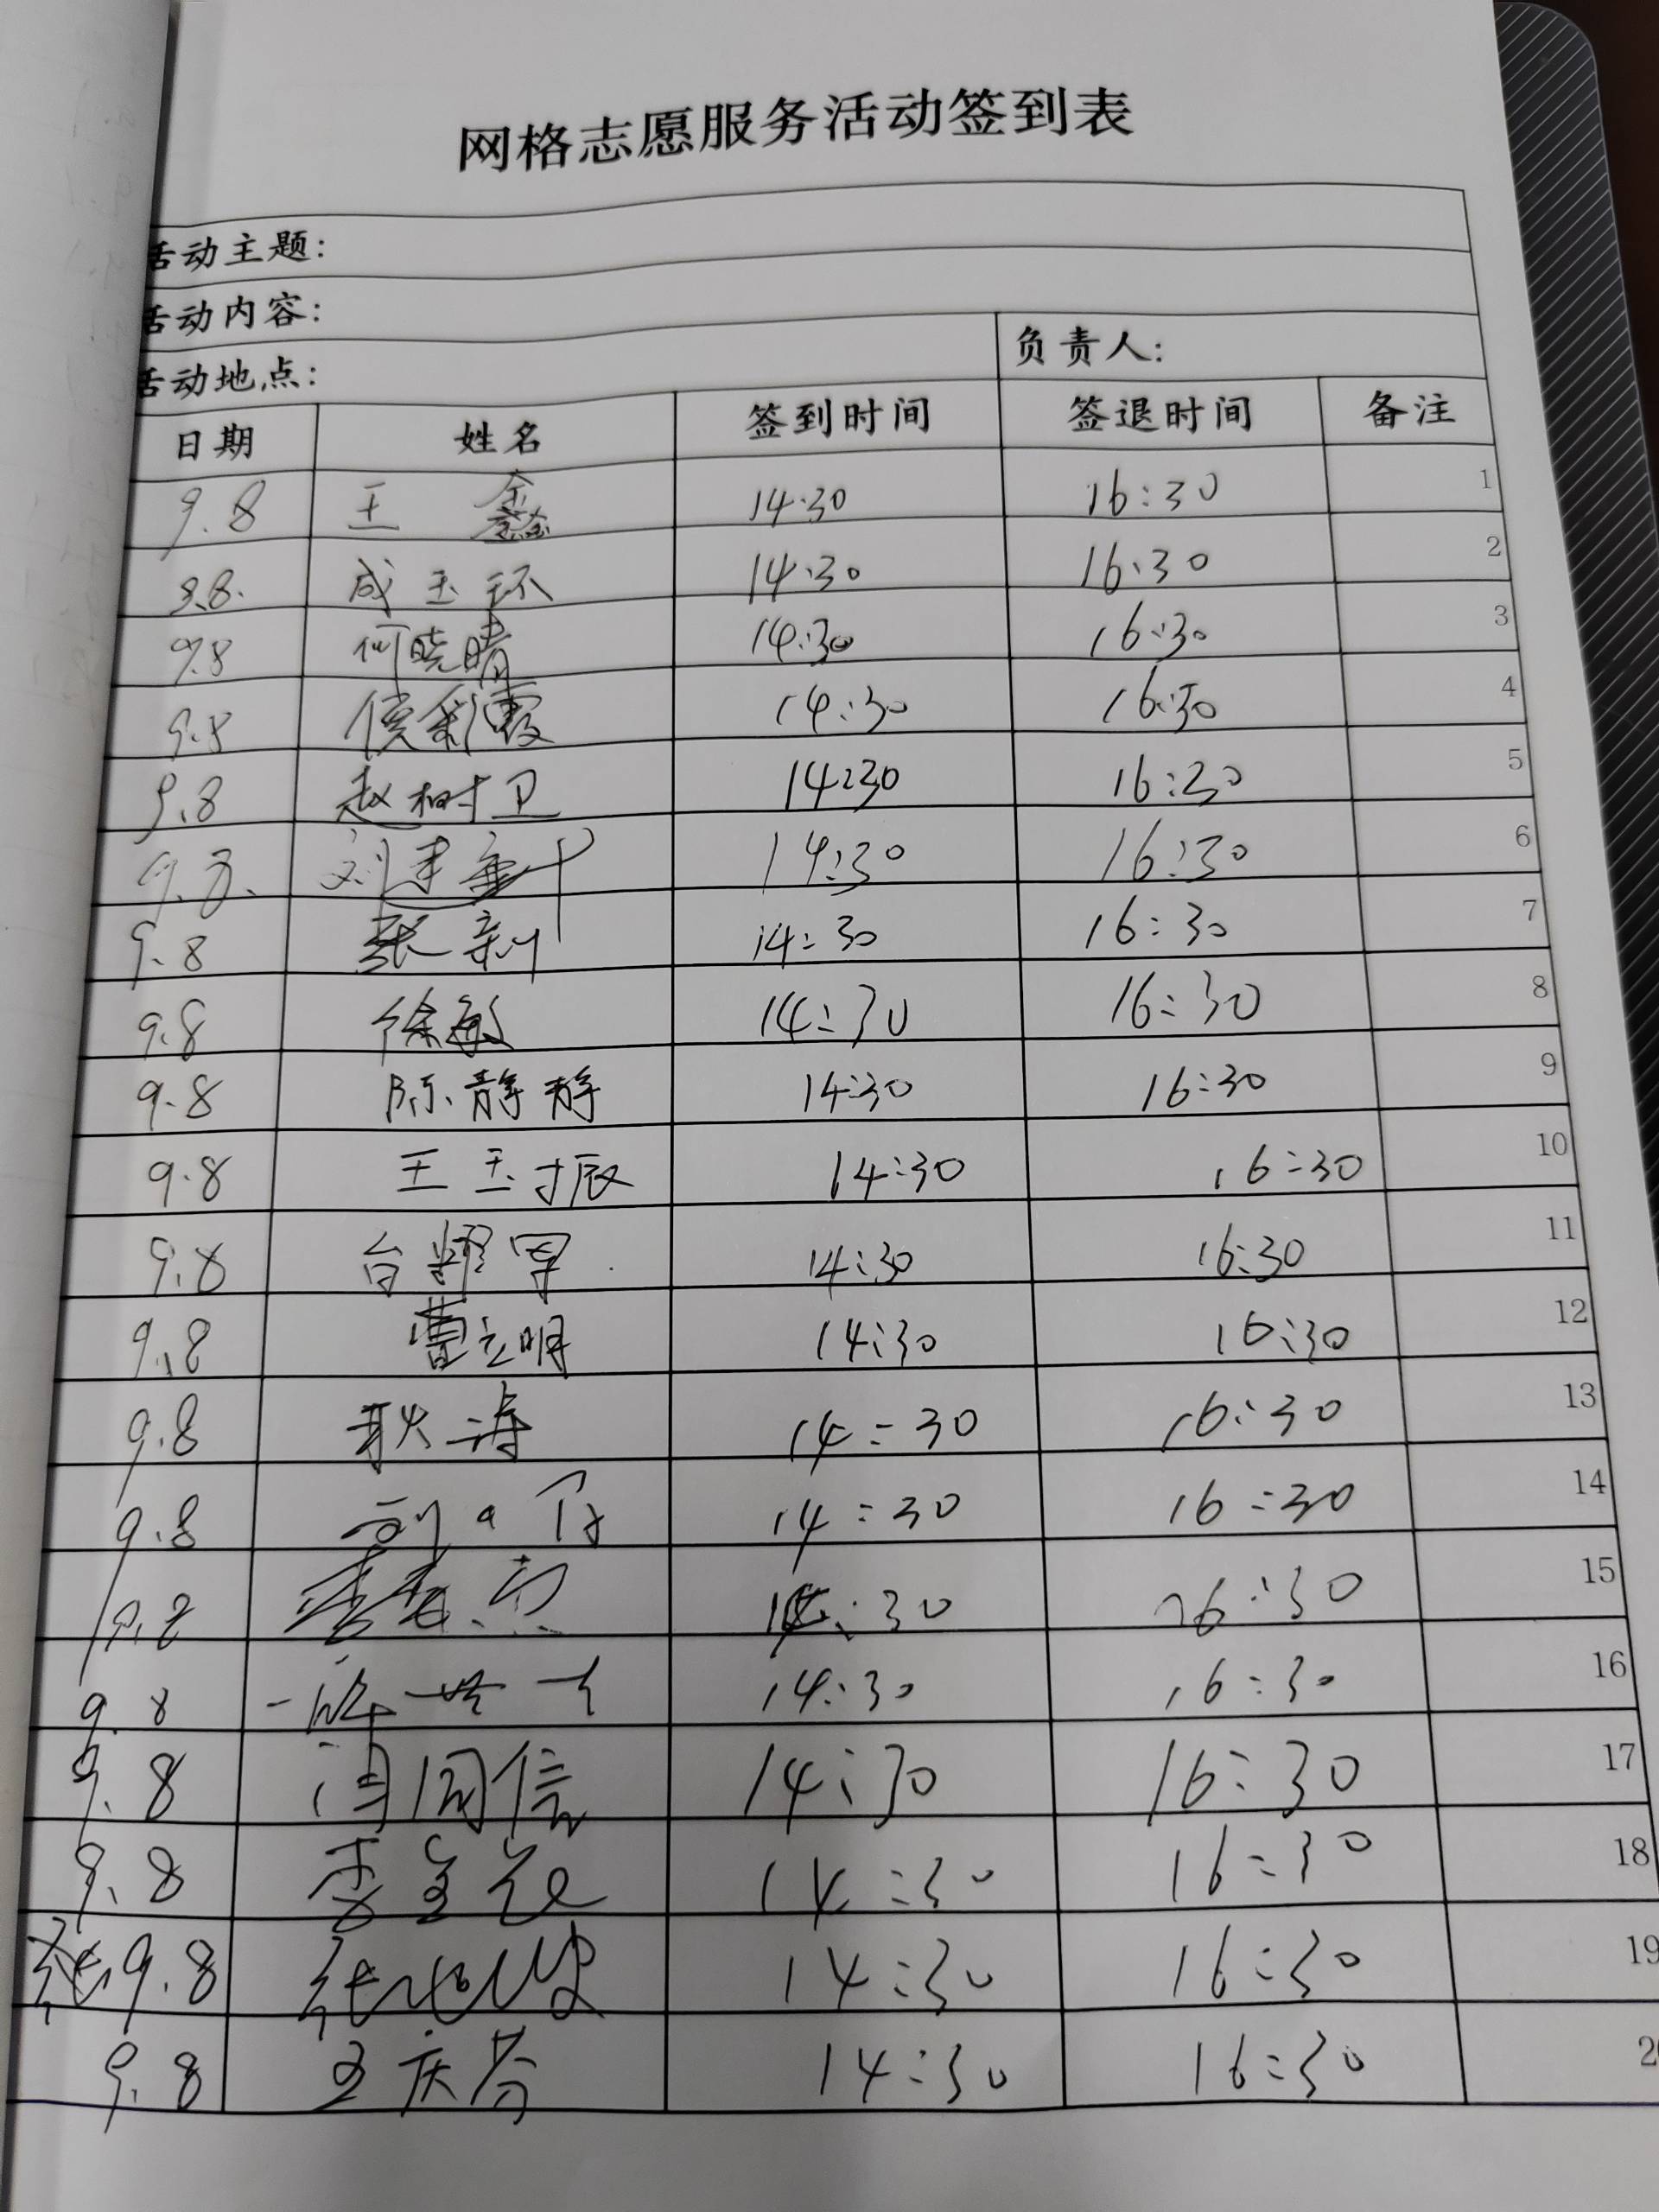 网格志愿服务活动签到表
活动主题：
活动内容：
活动地点： 负责人：
日期 姓名 签到时间 签退时间 备注
9.8 王鑫 14:30 16:30 1
9.8. 成玉环 14:30 16:30 2
9.8 何晓晴 14:30 16:30 3
9.8 侯彩霞 14:30 16:30 4
9.8 赵树卫 14:30 16:30 5
9.8. 14:30 16:30 6
9.8 张利 14:30 16:30 7
9.8 徐敏 14:30 16:30 8
9.8 陈静静 14:30 16:30 9
9.8 王玉振 14:30 16:30 10
9.8 台耀军 14:30 16:30 11
9.8 曹立明 14:30 16:30 12
9.8 耿涛 14:30 16:30 13
9.8 14:30 16:30 14
9.8 14:30 16:30 15
9.8 14:30 16:30 16
9.8 14:30 16:30 17
9.8 14:30 16:30 18
9.8 14:30 16:30 19
9.8 14:30 16:30